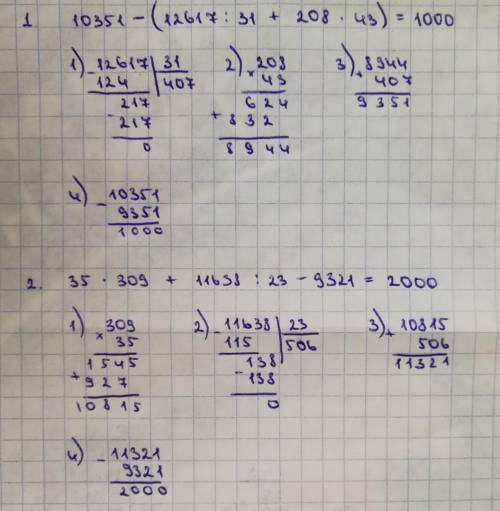 1 10351 – (12617 : 31 + 208 · 43) = 1000
1) 12617 | 31 2) 208 3) 8944
– 124 | 407 × 43 + 407
217 624 9351
– 217 + 832
0 8944
4) – 10351
9351
1000
2. 35 · 309 + 11638 : 23 – 9321 = 2000
1) 309 2) – 11638 | 23 3) 10815
× 35 115 | 506 + 506
1545 138 11321
+ 927 – 138
10815 0
4) – 11321
9321
2000